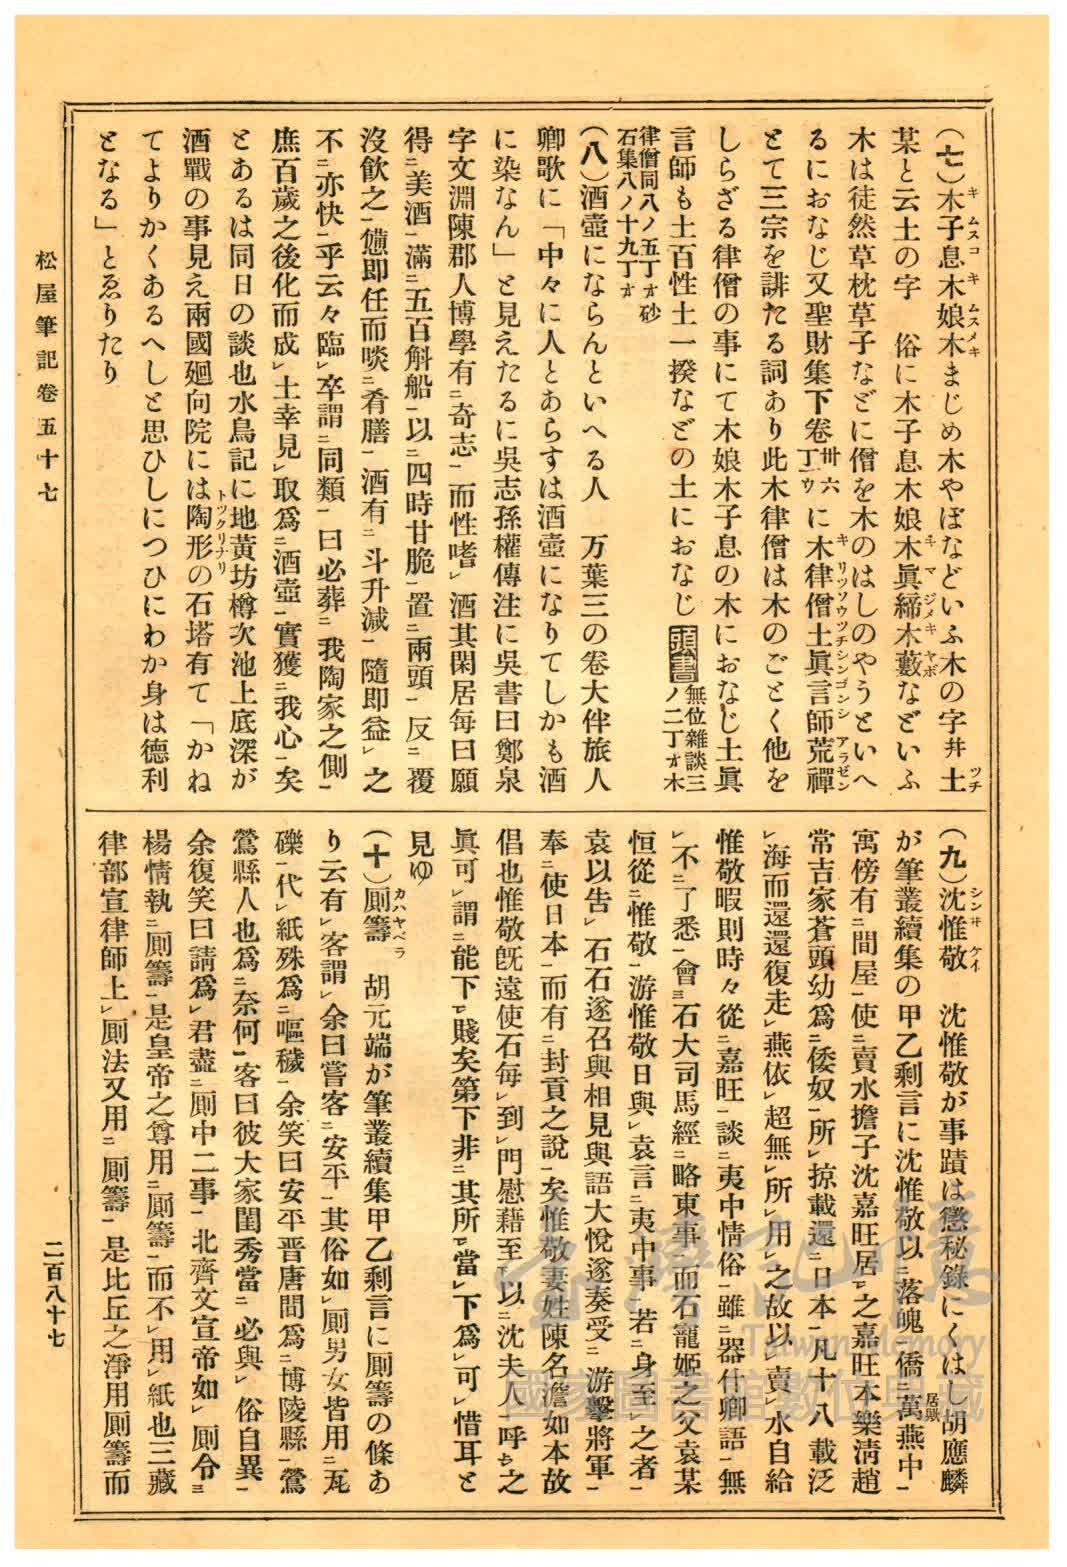 (七)木子息木娘木まじめ木やぼなどいふ木の字幷土
某と云土の字　俗に木子息木娘木眞締木藪などいふ
木は徒然草枕草子などに僧を木のはしのやうといへ
るにおなじ又聖財集下卷卅六丁ウに木律僧土眞言師荒禪
とて三宗を誹たる詞あり此木律僧は木のごとく他を
しらざる律僧の事にて木娘木子息の木におなじ土眞
言師も土百性土一揆などの土におなじ頭書無位雜談三ノ二丁オ木
律僧同八ノ五丁オ砂石集八ノ十九丁オ
(八)酒壺にならんといへる人　万葉三の卷大伴旅人
卿歌に「中々に人とあらすは酒壺になりてしかも酒
に染なん」と見えたるに吳志孫權傳注に吳書曰鄭泉
字文淵陳郡人博學有ニ奇志一而性嗜レ酒其閑居每曰願
得ニ美酒一滿ニ五百斛船一以ニ四時甘脆一置ニ兩頭一反ニ覆
沒飮之一憊即任而啖ニ肴膳一酒有ニ斗升減一隨即益レ之
不ニ亦快一乎云々臨レ卒謂ニ同類一曰必葬ニ我陶家之側一
庶百歲之後化而成レ土幸見レ取爲ニ酒壺一實獲ニ我心一矣
とあるは同日の談也水鳥記に地黃坊樽次池上底深が
酒戰の事見え兩國廻向院には陶形の石塔有て「かね
てよりかくあるへしと思ひしにつひにわか身は德利
となる」とゑりたり
(九)沈惟敬　沈惟敬が事蹟は懲毖錄にくはし胡應麟
が筆叢續集の甲乙剩言に沈惟敬以ニ落魄一僑ニ居萬燕中一
寓傍有ニ間屋一使ニ賣水擔子沈嘉旺居一レ之嘉旺本樂淸趙
常吉家蒼頭幼爲ニ倭奴一所レ掠載還ニ日本一凡十八載泛
レ海而還還復走レ燕依レ超無レ所レ用レ之故以レ賣レ水自給
惟敬暇則時々從ニ嘉旺一談ニ夷中情俗一雖ニ器什卿語一無
レ不ニ了悉一會ニ石大司馬經ニ略東事一而石寵姬之父袁某
恒從ニ惟敬一游惟敬日與レ袁言ニ夷中事一若ニ身至レ之者一
袁以吿レ石石遂召與相見與語大悅遂奏受ニ游擊將軍一
奉ニ使日本一而有ニ封貢之說一矣惟敬妻姓陳名澹如本故
倡也惟敬旣遠使石每レ到レ門慰藉至下以ニ沈夫人一呼上レ之
眞可レ謂ニ能下一レ賤矣第下非ニ其所一レ當レ下爲レ可レ惜耳と
見ゆ
(十)厠籌　胡元端が筆叢續集甲乙剩言に厠籌の條あ
り云有レ客謂レ余曰嘗客ニ安平一其俗如レ厠男女皆用ニ瓦
礫一代レ紙殊爲ニ嘔穢一余笑曰安平晋唐間爲ニ博陵縣一鶯
鶯縣人也爲ニ奈何一客曰彼大家閨秀當ニ必與レ俗自異一
余復笑曰請爲レ君盡ニ厠中二事一北齊文宣帝如レ厠令三
楊愔執ニ厠籌一是皇帝之尊用ニ厠籌一而不レ用レ紙也三藏
律部宣律師上レ厠法又用ニ厠籌一是比丘之淨用厠籌而
松屋筆記卷五十七
二百八十七
臺灣記憶
Taiwan Memory
國家圖書館數位典藏